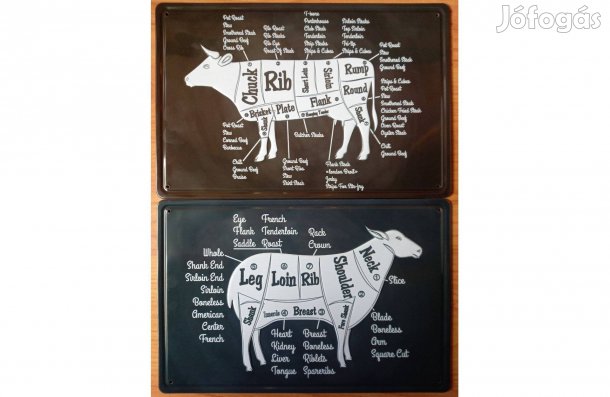 Jófogás
Pot Roast
Stew
Smothered Steak
Ground Beef
Cross Rib
Rib Roast
Rib Steaks
Rib Eye
Roast Of Steak
T-bone
Porterhouse
Club Steak
Tenderloin
Strip Steaks
Strips & Cubes
Sirloin Steaks
Top Sirloin
Tenderloin
Tri-Tip
Strips & Cubes
Pot Roast
Stew
Smothered Steak
Ground Beef
Chuck
Rib
Short Loin
Sirloin
Rump
Round
Brisket
Plate
Flank
Shank
Shank
Strips & Cubes
Pot Roast
Stew
Smothered Steak
Chicken Fried Steak
Ground Beef
Oven Roast
Oyster Steak
Chili
Ground Beef
Pot Roast
Stew
Corned Beef
Barbecue
Chili
Ground Beef
Braise
Butcher Steaks
Ground Beef
Short Ribs
Stew
Skirt Steak
Flank Steak
"London Broil"
Jerky
Strips For Stir-fry
Eye
Flank
Saddle
French
Tenderloin
Roast
Rack
Crown
Whole
Shank End
Sirloin End
Sirloin
Boneless
American
Center
French
Leg
Loin
Rib
Shoulder
Neck
Slice
Shank
Innards
Breast
Fore Shank
Heart
Kidney
Liver
Tongue
Breast
Boneless
Riblets
Spareribs
Blade
Boneless
Arm
Square Cut